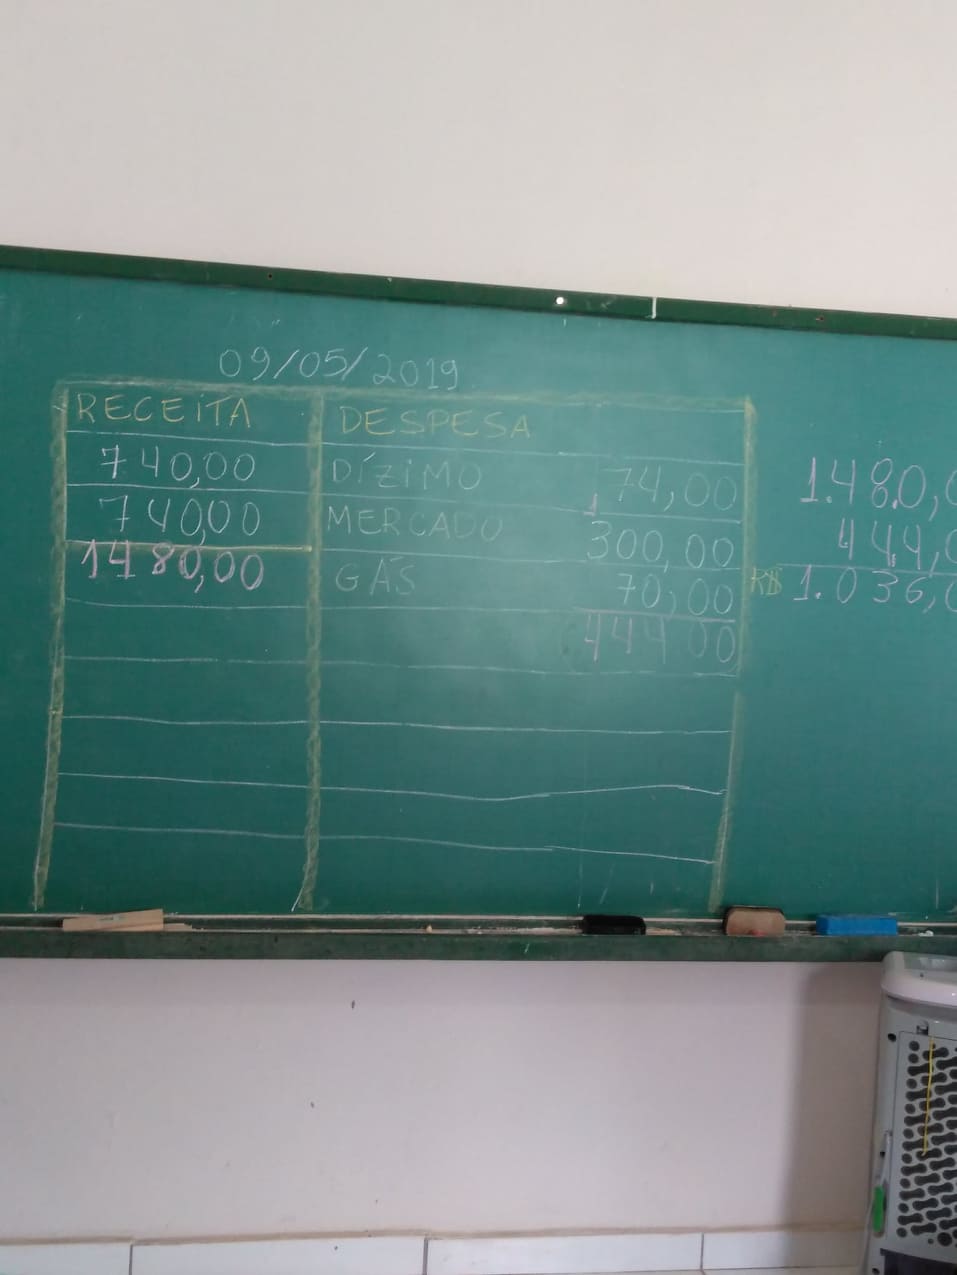 09/05/2019
RECEITA DESPESA
740,00 DÍZIMO 74,00
740,00 MERCADO 300,00
1480,00 GÁS 70,00
444 00
1.480,0
444,0
R$ 1.036,0